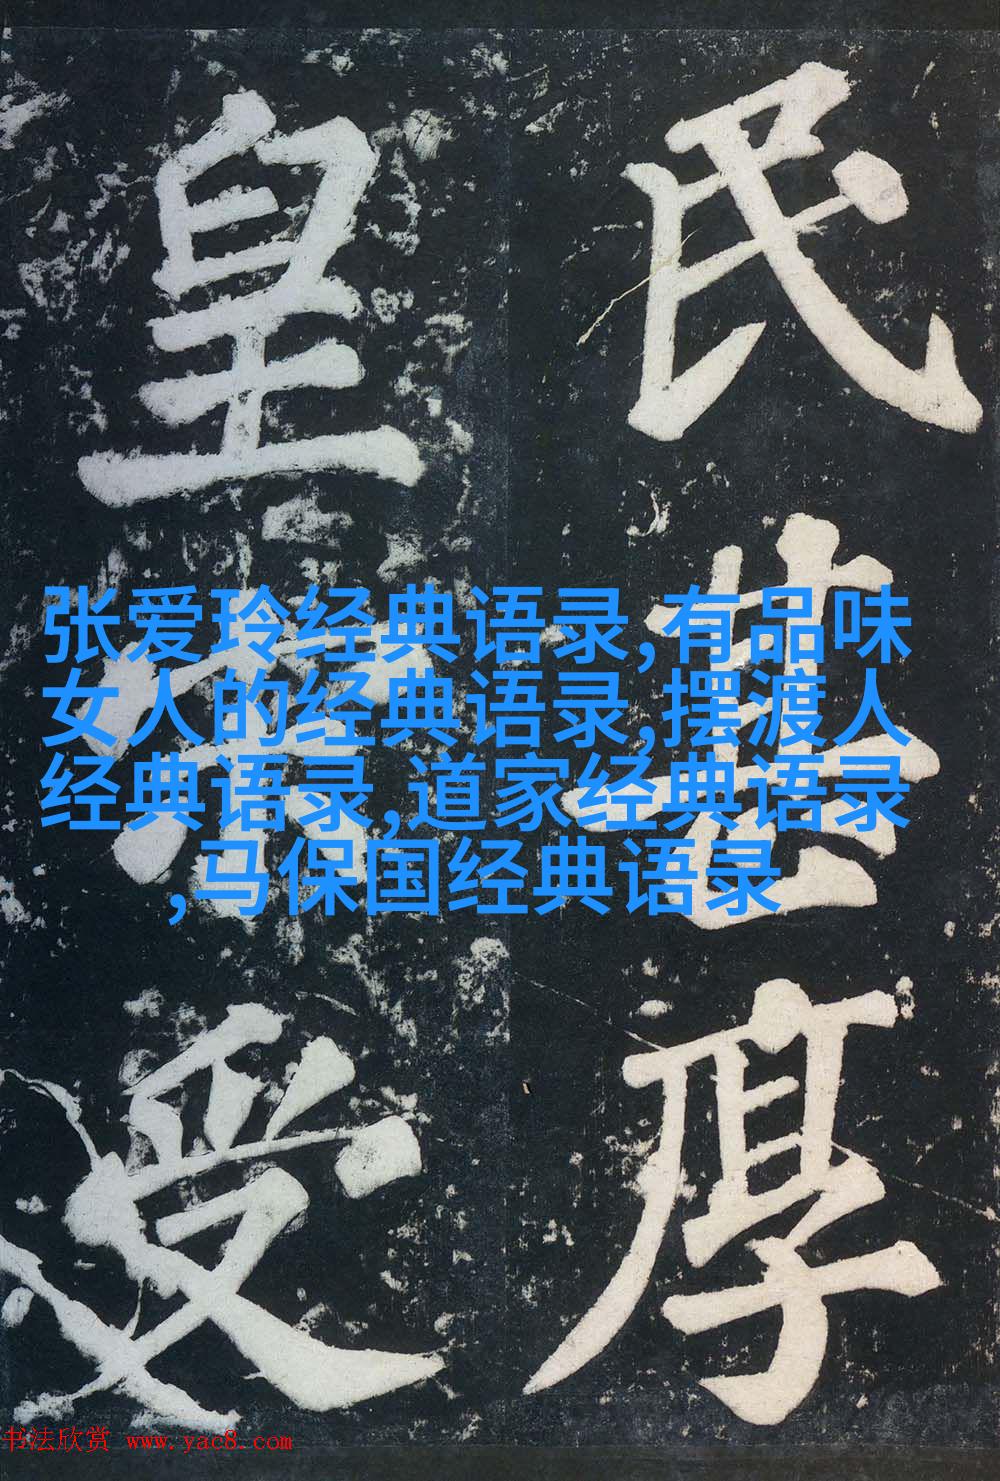 民甚厚
皇宗受
张爱玲经典语录,有品味
女人的经典语录,摆渡人
经典语录,道家经典语录
,马保国经典语录
书法欣赏 www.yac8.com